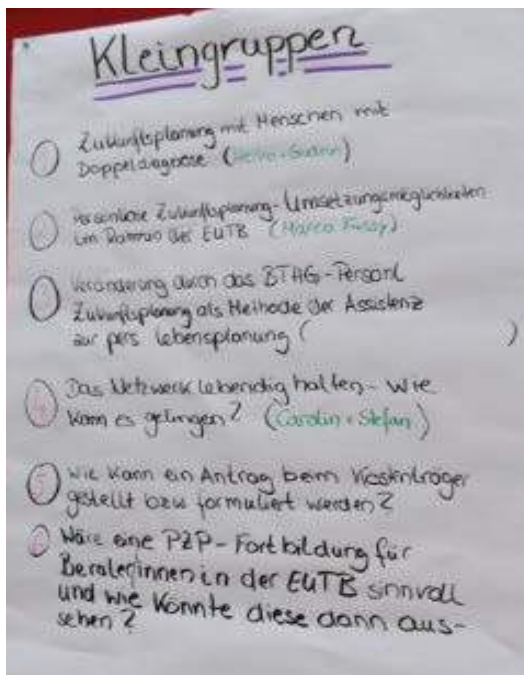 Kleingruppen
Zukunftsplanung mit Menschen mit
Doppeldiagnose (
Persönliche Zukunftsplanung - Umsetzungsmöglichkeiten
im Rahmen der EUTB (Marco
Veränderung durch das BTHG - Persönl
Zukunftsplanung als Methode der Assistenz
zur pers Lebensplanung ( )
4
Das Netzwerk lebendig halten - wie
kann es gelingen? (Carolin + Stefan)
5
Wie kann ein Antrag beim Kostenträger
gestellt bzw formuliert werden?
Wäre eine PZP - Fortbildung für
Beraterinnen in der EUTB sinnvoll
und wie könnte diese dann aus-
sehen?